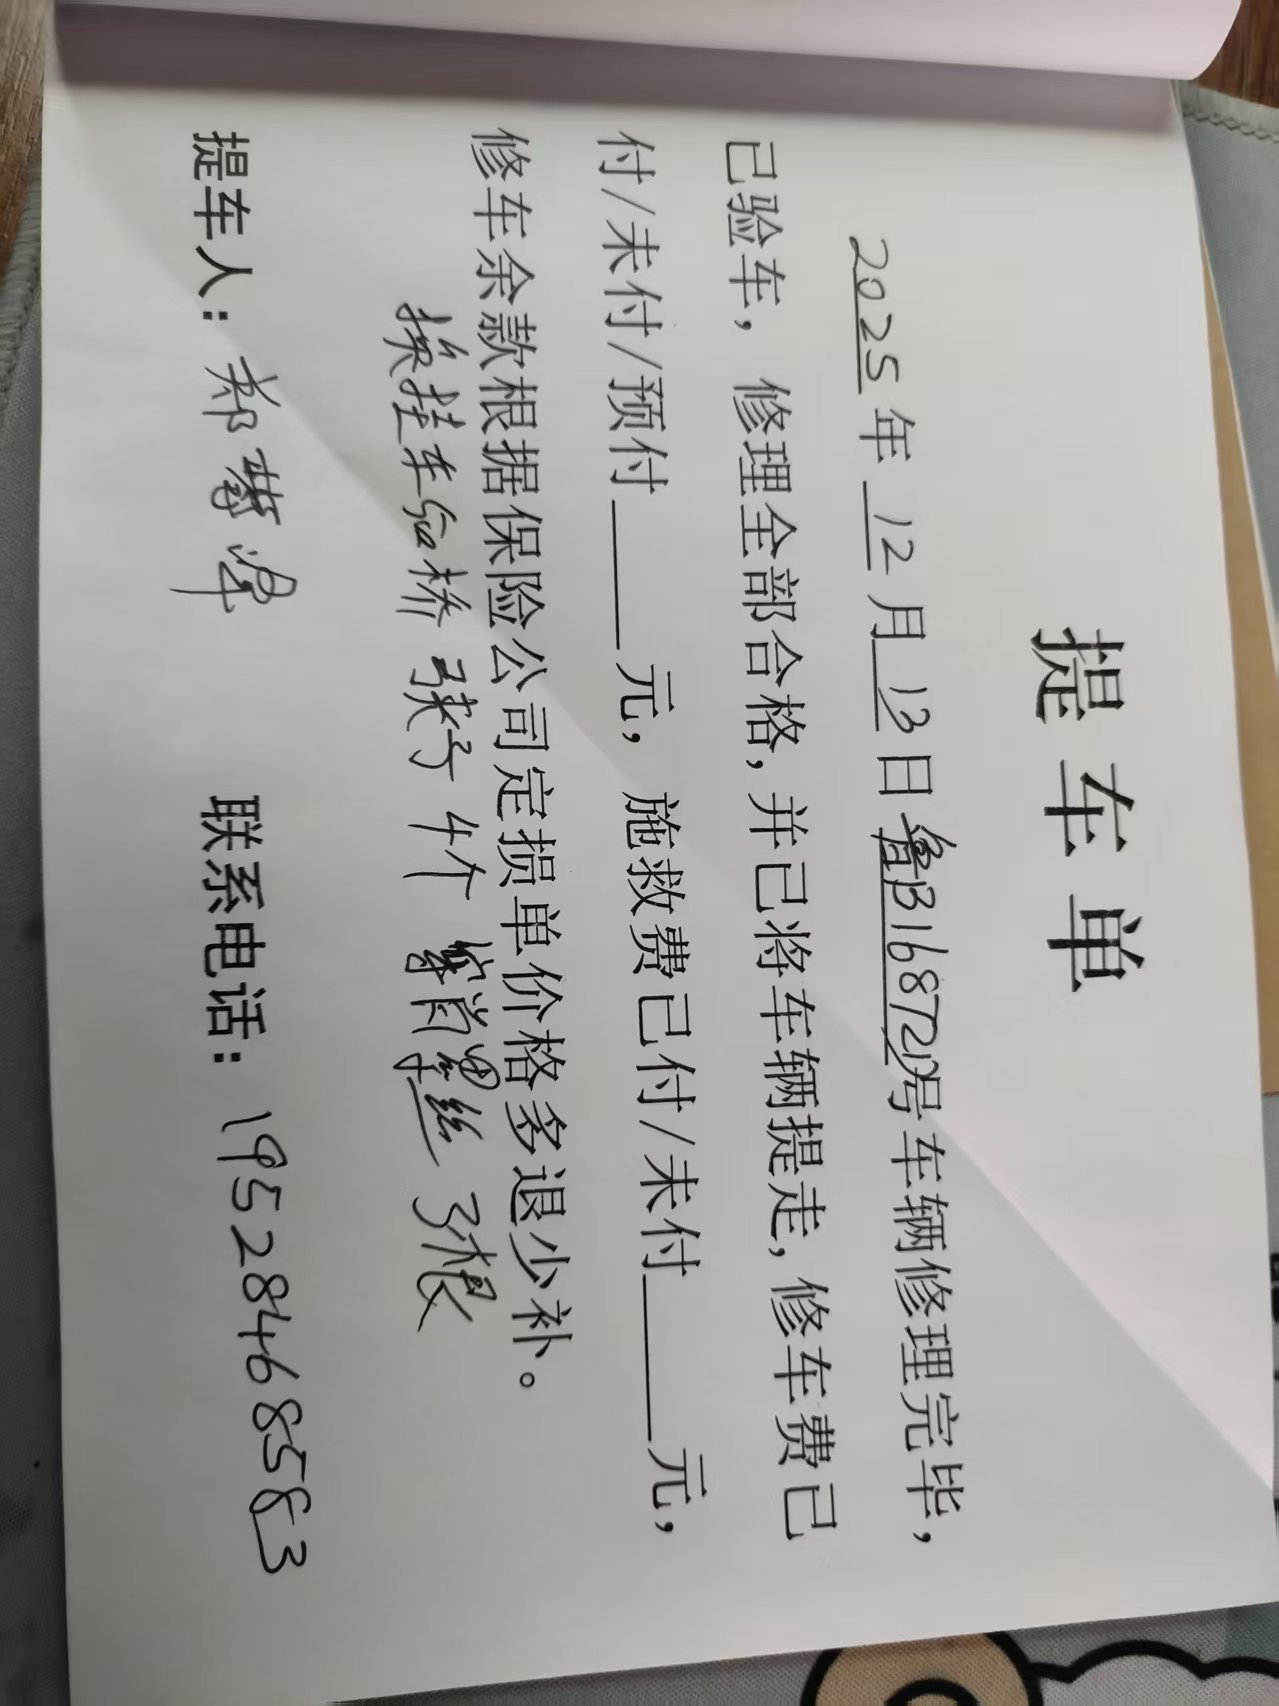 提车单
2025年12月13日鲁B1687号车辆修理完毕，
已验车，修理全部合格，并已将车辆提走，修车费已
付/未付/预付____元，施救费已付/未付____元，
修车余款根据保险公司定损单价格多退少补。
换挂车后桥 4个 丝
提车人：郑 联系电话：19528468583